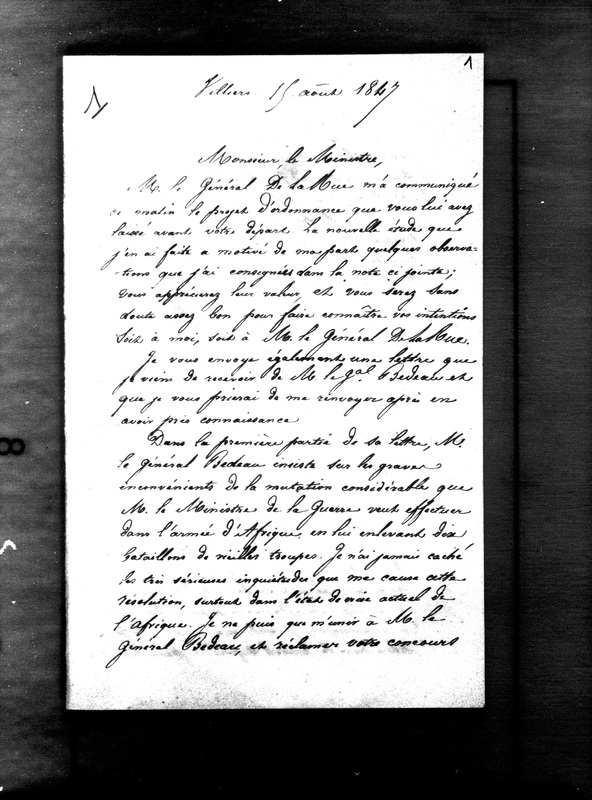 1
Villiers 15 août 1847
Monsieur le Ministre,
M. le Général De la Rue m'a communiqué
ce matin le projet d'ordonnance que vous lui avez
laissé avant votre départ. La nouvelle étude que
j'en ai faite a motivé de ma part quelques observa-
-tions que j'ai consignées dans la note ci jointe;
vous apprécierez leur valeur, et vous serez sans
doute assez bon pour faire connaître vos intentions
soit à moi, soit à M. le Général De la Rue.
Je vous envoye également une lettre que
je viens de recevoir de M. le gal Bedeau et
que je vous prierai de me renvoyer après en
avoir pris connaissance
Dans la première partie de sa lettre, M.
le Général Bedeau insiste sur les graves
inconvénients de la mutation considérable que
M. le Ministre de la Guerre veut effectuer
dans l'armée d'Afrique, en lui enlevant dix
bataillons de vieilles troupes. Je n'ai jamais caché
les très sérieuses inquiétudes que me cause cette
résolution, surtout dans l'état de crise actuel de
l'Afrique. Je ne puis que m'unir à M. le
Général Bedeau, et réclamer votre concours
8